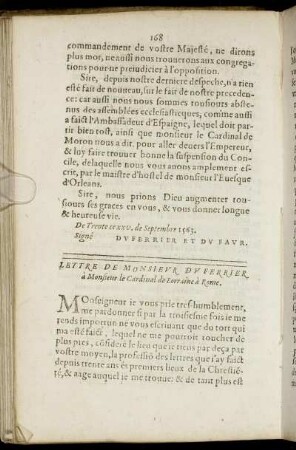 168
commandement de vostre Majesté, ne dirons
plus mot, ne aussi nous trouuerons aux congrega-
tions pour ne preiudicier à l'opposition.
Sire, depuis nostre derniere despeche, n'a rien
esté fait de nouueau, sur le fait de nostre preceden-
ce: car aussi nous nous sommes tousiours abste-
nus des assemblées ecclesiastiques, comme aussi
a faict l'Ambassadeur d'Espaigne, lequel doit par-
tir bien tost, ainsi que monsieur le Cardinal de
Moron nous a dit, pour aller deuers l'Empereur,
& luy faire trouuer bonne la suspension du Con-
cile, de laquelle nous vous auons amplement es-
crit, par le maistre d'hostel de monsieur l'Euesque
d'Orleans.
Sire, nous prions Dieu augmenter tou-
siours ses graces en vous, & vous donner longue
& heureuse vie.
De Trente ce xxv. de Septembre 1563.
Signé DV FERRIER ET DV FAVR.
LETTRE DE MONSIEVR DV FERRIER
à Monsieur le Cardinal de Lorraine à Rome.
Monseigneur ie vous prie tres-humblement,
me pardonner si par la troisiesme fois ie me
rends importun ne vous escriuant que du tort qui
m'a esté faict, lequel ne me pourroit toucher de
plus pres, consideré le lieu que ie tiens par deça par
vostre moyen, la professiō des lettres que i'ay faict
depuis trente ans és premiers lieux de la Chrestiē-
té, & aage auquel ie me trouue: & de tant plus est